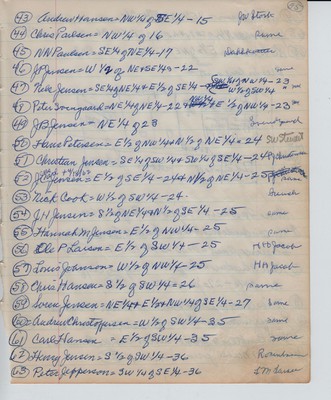 43) Andrew Hansen = NW¼ of SE¼ - 15
44 Chris Paulsen = NW¼ of 16 Same
45 NN Paulsen = SE¼ of NE¼ - 17
46 J.P. Jensen = W½ of NE + SE¼ - 22
47 Nels Jensen = SE¼ of NE¼ + E½ of SE¼ SW¼ of NW¼ - 23 W½ of SW¼
48 Peter Soongaard = NE¼ of NE¼ - 22 NW¼ E½ of NW¼ - 23
49 J.B. Jensen = NE¼ of 28
50 Hans Petersen = E½ of NW¼ + N½ of NE¼ = 24
51 Christian Jensen = SE¼ of SW¼ + SW¼ of SE¼ - 24
52 Jensen = E½ of SE¼ - 24 + N½ of NE¼ - 25
53 Nick Cook = W½ of SW¼ - 24 French
54 J.N. Jensen = S½ of NE¼ + N½ of SE¼ - 25 same
55 Hannah M Jensen = E½ of NW¼ - 25 same
56 Ole P Larsen = E½ of SW¼ - 25 H H Jacob
57 Louis Johnson = W½ of NW¼ - 25 H H Jacob
58 Chris Hansen = S½ of SW¼ = 26 Same
59 Soren Jensen = NE¼ + E½ + NW¼ of SE¼ - 27 Same
60 Andrew Christoffersen = W½ of SW¼ - 35 same
61 Carl Hansen = E½ of SW¼ - 35 same
62 Henry Jensen = S½ of SW¼ - 36
63 Peter Jepperson = SW¼ of SE¼ - 36 L M Larsen